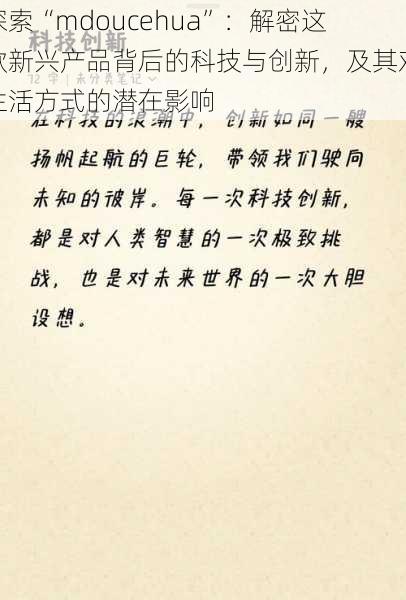 探索“mdoucehua”：解密这
款新兴产品背后的科技与创新，及其对
生活方式的潜在影响
科技创新
72 字 | 未分类笔记
在科技的浪潮中，创新如同一艘
扬帆起航的巨轮，带领我们驶向
未知的彼岸。每一次科技创新，
都是对人类智慧的一次极致挑
战，也是对未来世界的一次大胆
设想。